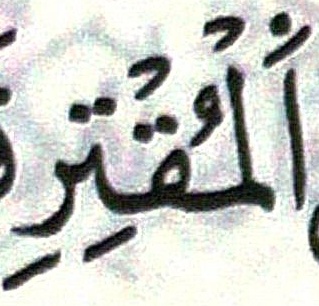 ٱلْمُقْتِرِ